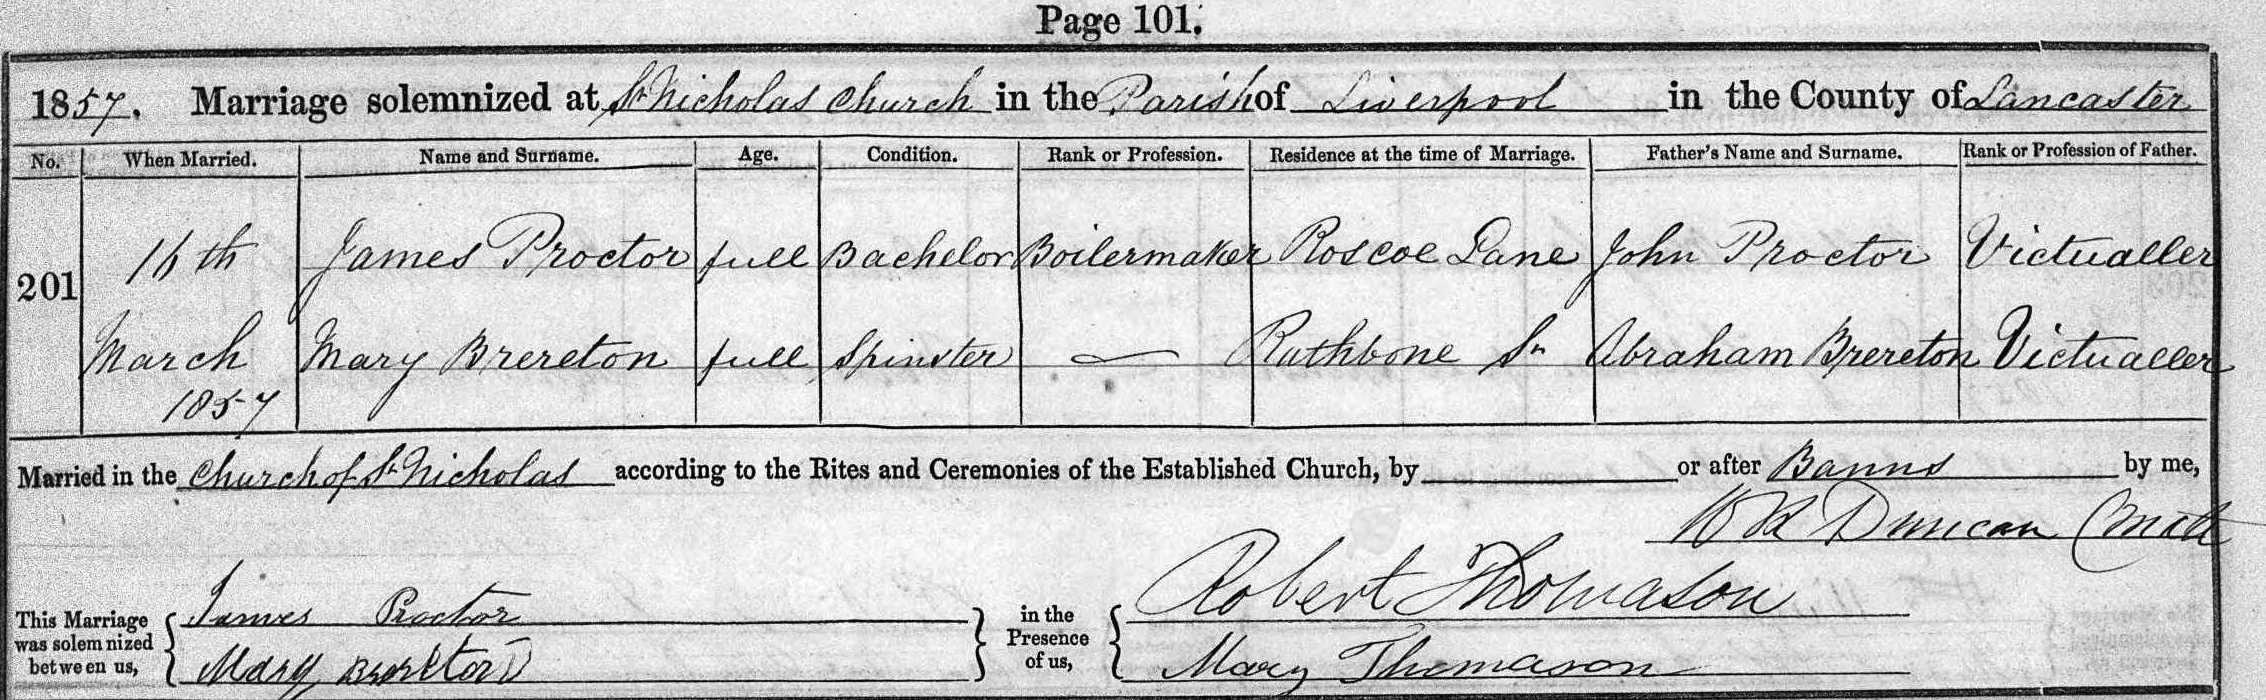 Page 101.
1857. Marriage solemnized at St Nicholas Church in the Parish of Liverpool in the County of Lancaster
No. When Married. Name and Surname. Age. Condition. Rank or Profession. Residence at the time of Marriage. Father's Name and Surname. Rank or Profession of Father.
16th James Proctor full Bachelor Boilermaker Roscoe Lane John Proctor Victualler
201
March Mary Brereton full Spinster — Rathbone St Abraham Brereton Victualler
1857
Married in the Church of St Nicholas according to the Rites and Ceremonies of the Established Church, by or after Banns by me,
Duncan
This Marriage was solemnized between us, James Proctor Mary Brereton in the Presence of us, Robert Thomason Mary Thomason